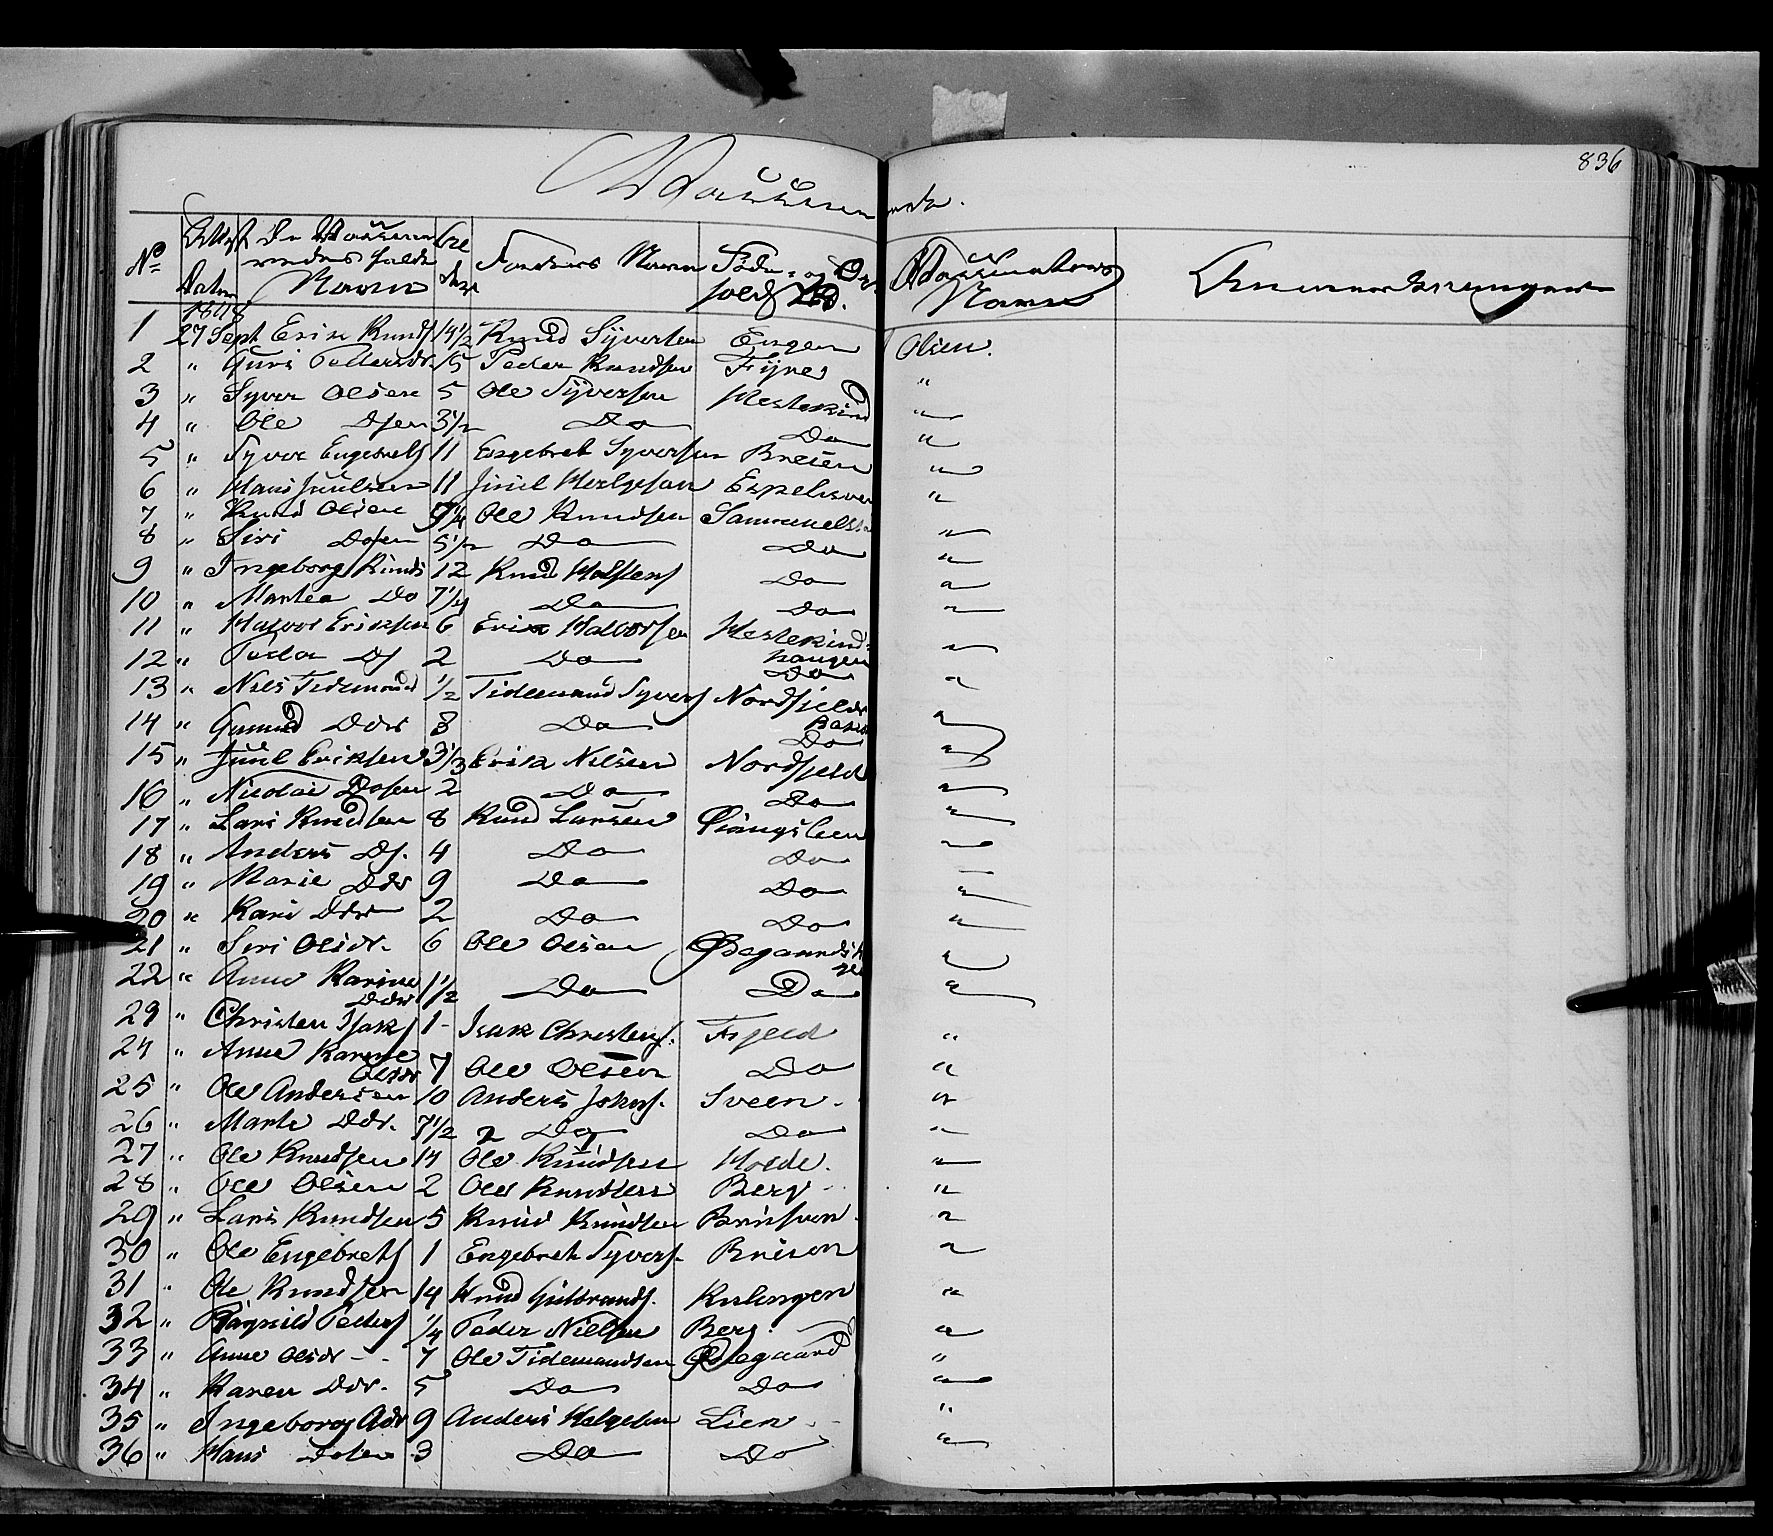 836
Vaccinerede.
No
Attest Datum
De Vaccineredes fulde Navn
Alder
Faders Navn
Føde- og Opholdsted.
Vaccinateurs Navn
Anmærkninger
1848
1 27 Sept Erik Knuds 14½ Knud Syversen Engen Olsen.
2 " Guri Pedersdr. 15 Peder Knudsen "
3 " Syver Olsen 5 Ole Syversen Hestekind "
4 " Ole Dsen 3½ Do Do "
5 " Syver Engebrets 11 Engebret Syversen "
6 " Hans Juulsen 11 Juul Helgesen "
7 " Knud Olsen Ole Knudsen "
8 " Siri 5½ Do Do "
9 " Ingeborg Knuds 12 Knud Do "
10 " Marthea Do 7¼ Do Do "
11 " Halvor Eriksen 6 Erik Halvorsen Hestekind-haugen "
12 " Peder Ds 2 Do Do "
13 " Nils Tidemand ½ Tidemand Syvers "
14 " Gunild Ddr 8 Do Do "
15 " Juul Eriksen 3⅓ Erik Nilsen Nordfjeld "
16 " Nicolai Dosen 2 Do Do "
17 " Lars Knudsen 8 Knud Larsen "
18 " Anders Ds. 4 Do Do "
19 " Marie Ddr 9 Do Do "
20 " Kari Ddr 2 Do Do "
21 " Siri Olsdr. 6 Ole Olsen "
22 " Anne Karine Ddr 1½ Do Do "
23 " Christen Isaks 1 - Isak Christens. Fjeld "
24 " Anne Karine Olsdr 7 Ole Olsen Do "
25 " Ole Andersen 10 Anders Johns. Sveen. "
26 " Marte Ddr. 7½ Do Do "
27 " Ole Knudsen 14 Ole Knudsen "
28 " Ole Olsen 2 Ole Knudsen Berg "
29 " Lars Knudsen 5 Knud Knudsen "
30 " Ole Engebrets 1 Engebret Syvers. "
31 " Ole Knudsen 14 Knud Gulbrands. "
32 " Ragnild Peders ¼ Peder Nielsen Berg. "
33 " Anne Olsdr - - 7 Ole Tidemandsen Ødegaard "
34 " Karen Ddr. 5 Do Do "
35 " Ingeborg Adr 9 Anders Helgesen Lien "
36 " Hans Dosen 3 Do Do "